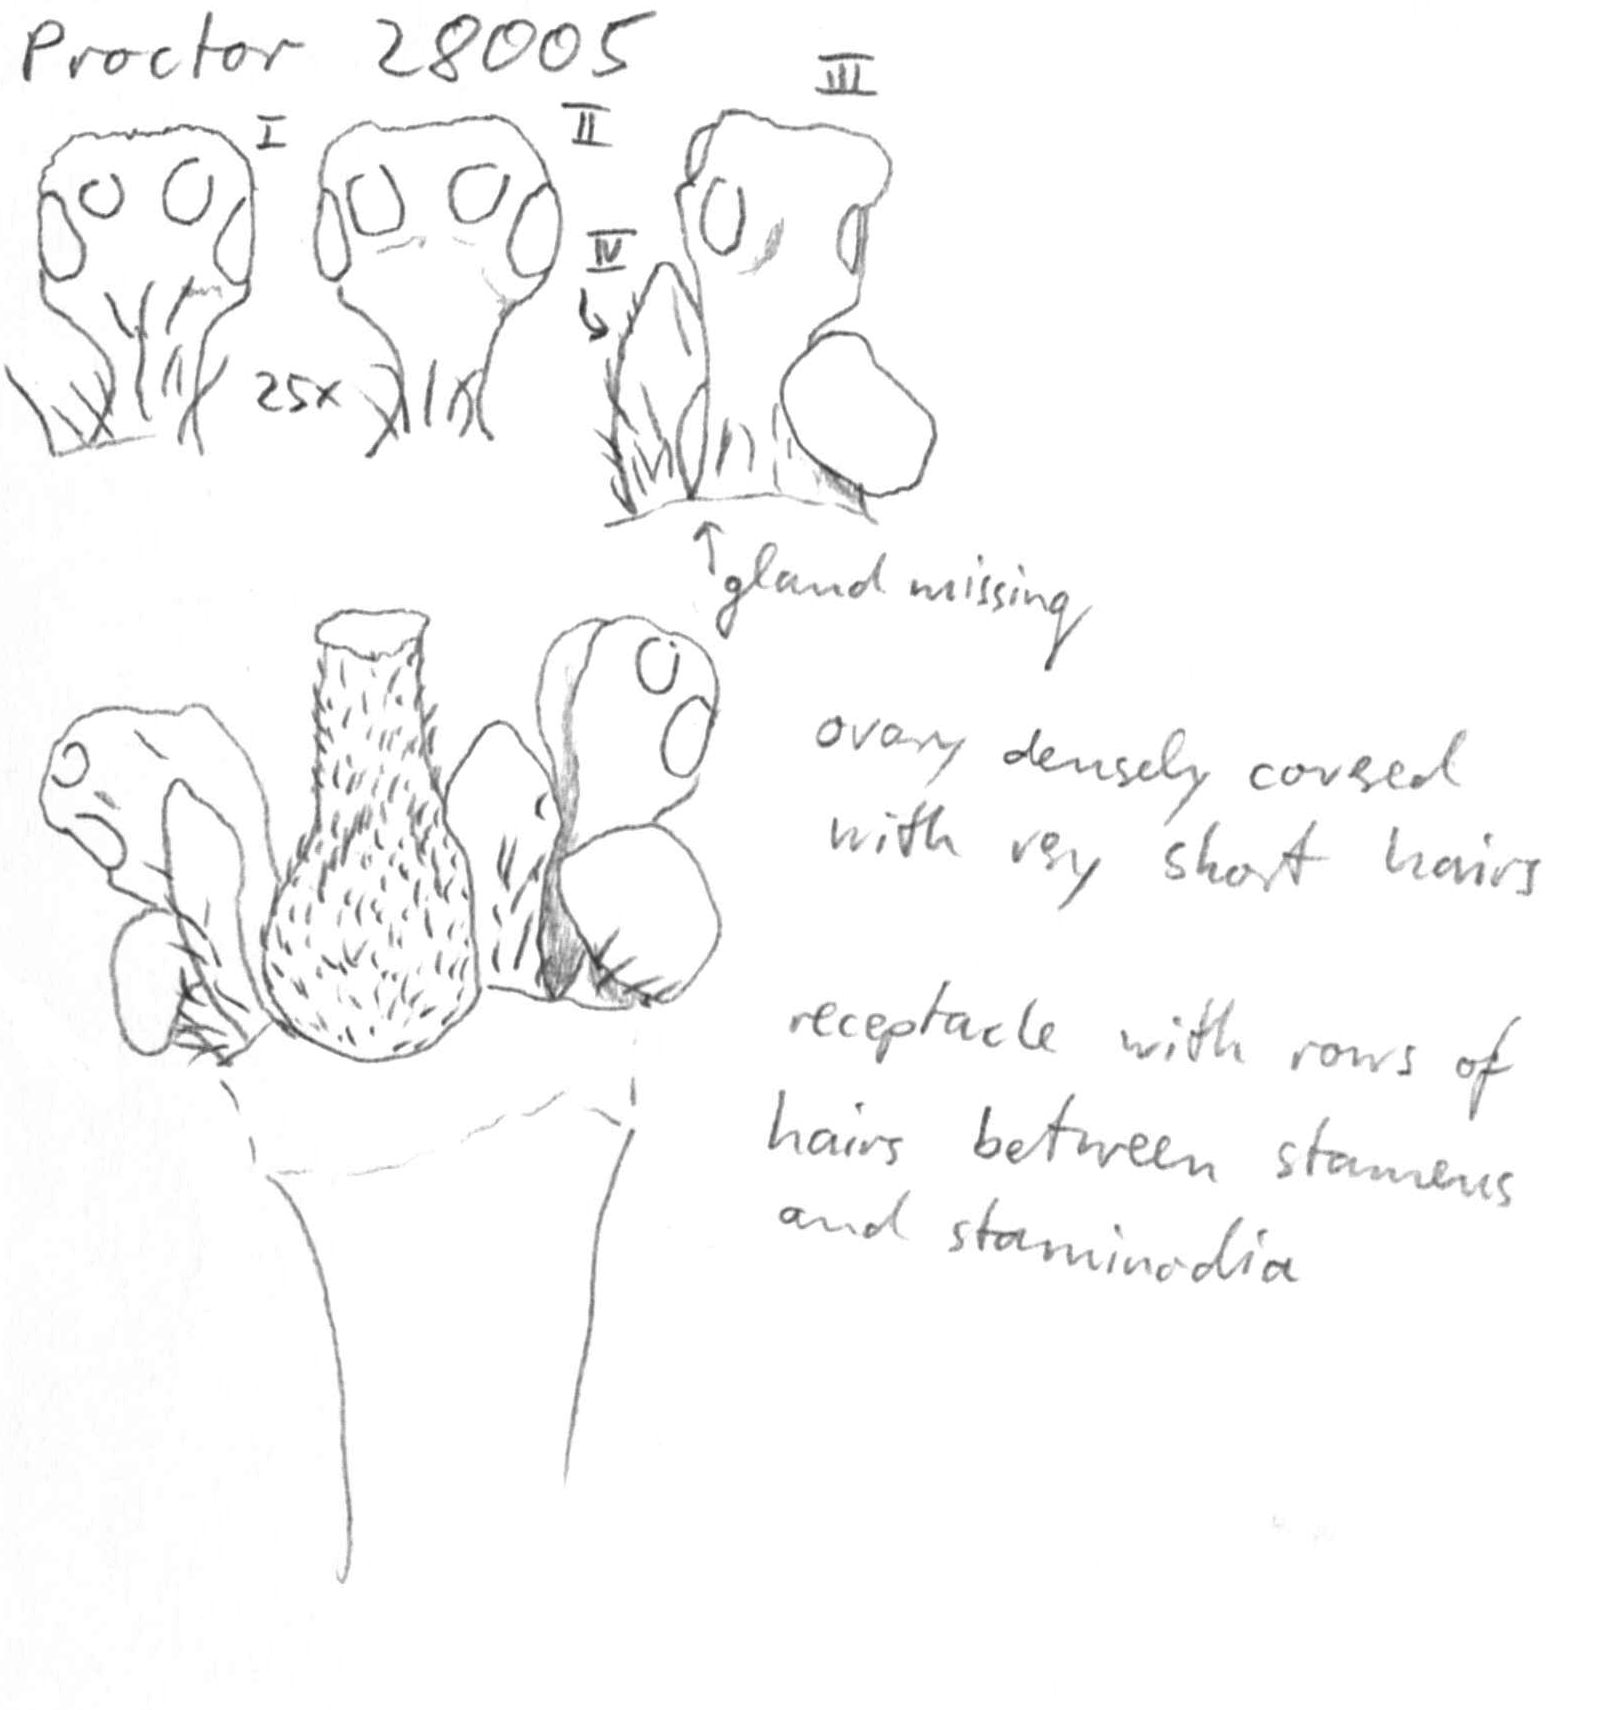 Proctor 28005
I
II
III
IV
25x
gland missing
ovary densely covered
with very short hairs
receptacle with rows of
hairs between stamens
and staminodia